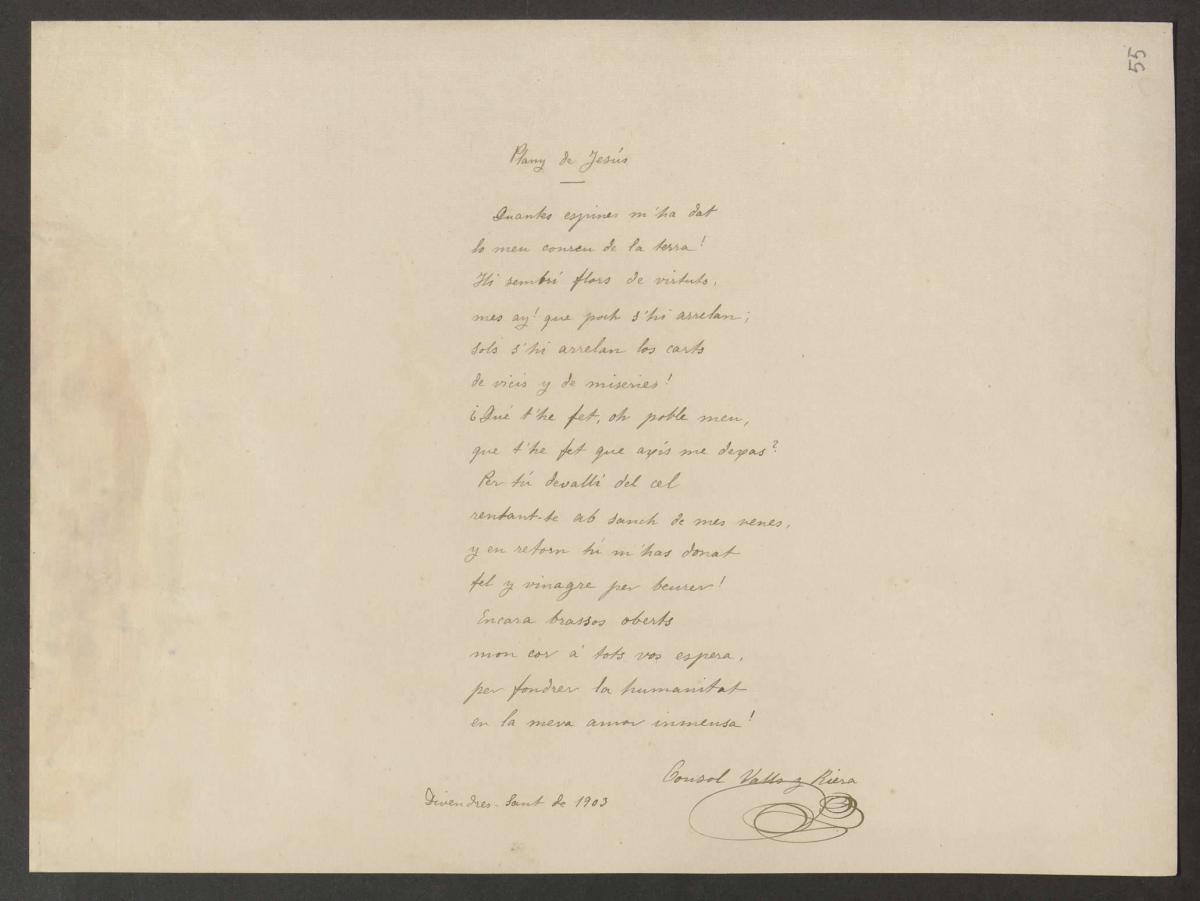 55
Plany de Jesús
Quantes espines m'ha dat
lo meu conreu de la terra!
Hi sembrí flors de virtuts,
mes ay! que poch s'hi arrelan;
sols s'hi arrelan los carts
de vicis y de miseries!
¿Qué t'he fet, oh poble meu,
que t'he fet que axís me dexas?
Per tú devallí del cel
rentant-te ab sanch de mes venes,
y en retorn tú m'has donat
fel y vinagre per beurer!
Encara brassos oberts
mon cor á tots vos espera,
per fondrer la humanitat
en la meva amor inmensa!
Consol Valls y Riera
Divendres-Sant de 1903